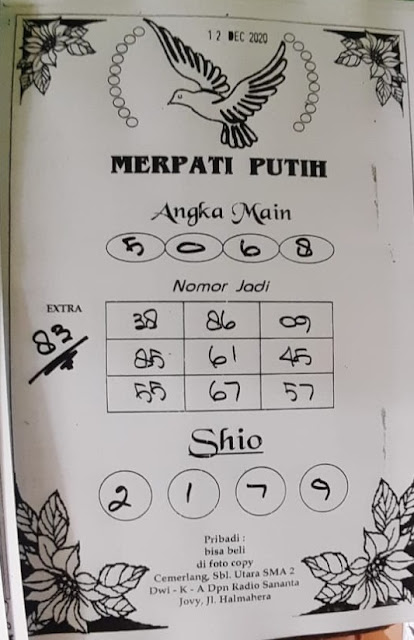 12 DEC 2020
MERPATI PUTIH
Angka Main
5 0 6 8
Nomor Jadi
EXTRA
83
38 86 09
85 61 45
55 67 57
Shio
2 1 7 9
Pribadi :
bisa beli
di foto copy
Cemerlang, Sbl. Utara SMA 2
Dwi - K - A Dpn Radio Sananta
Jovy, Jl. Halmahera